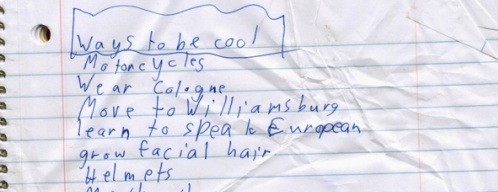 Ways to be cool
Motorcycles
Wear Cologne
Move to Williamsburg
learn to speak European
grow facial hair
Helmets